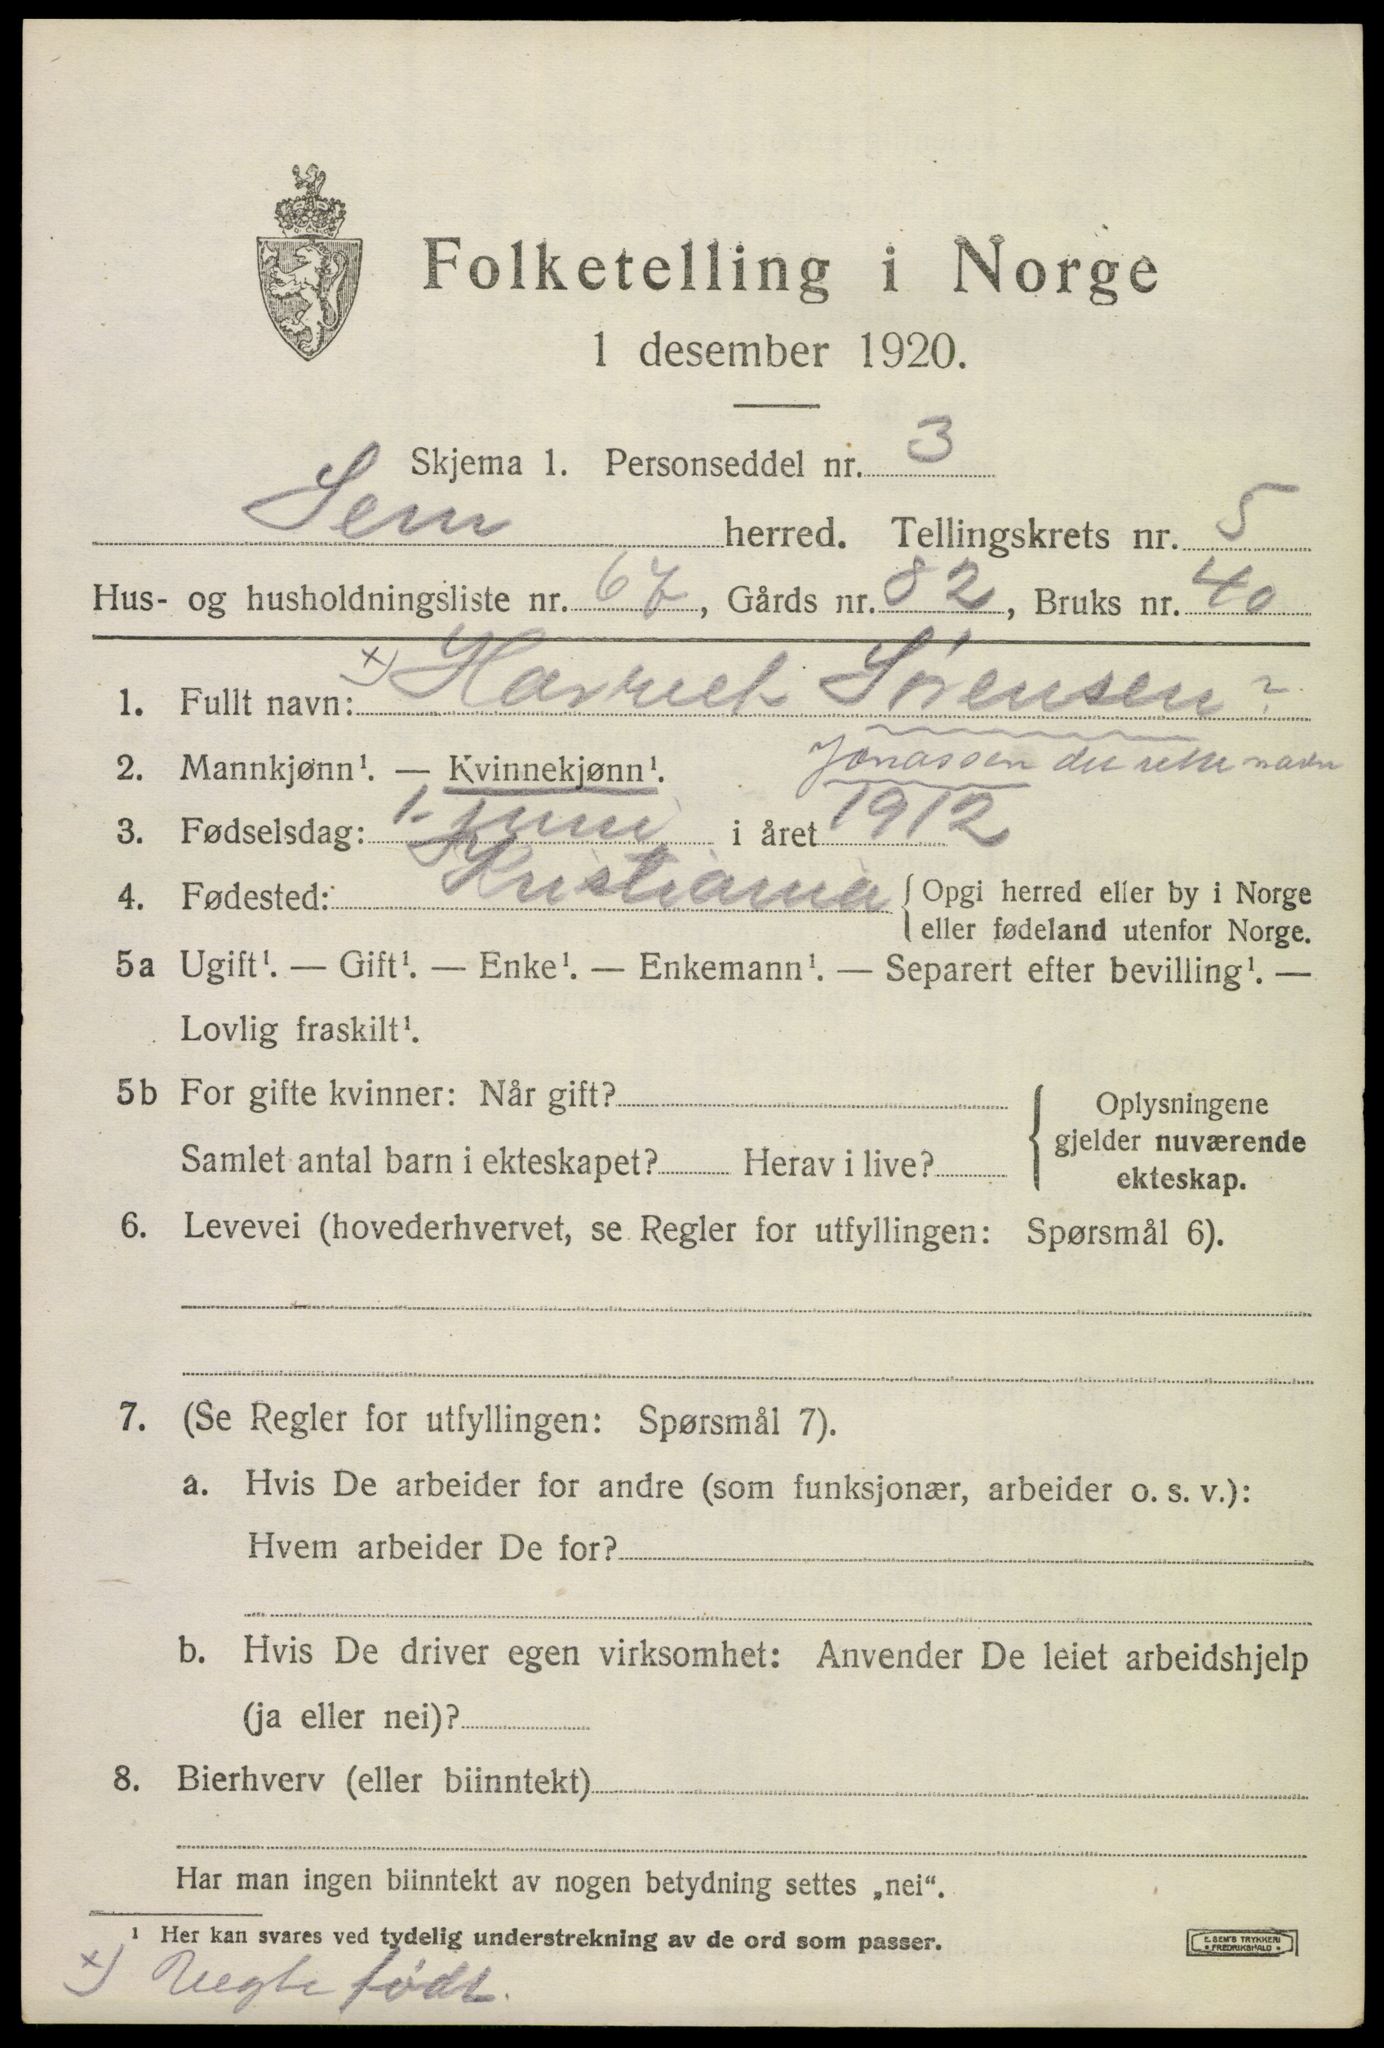 Folketelling i Norge
1 desember 1920.
Skjema 1. Personseddel nr. 3
Sem herred. Tellingskrets nr. 5
Hus- og husholdningsliste nr. 67, Gårds nr. 82, Bruks nr. 40
1. Fullt navn: x) Harriet Sørensen ?
2. Mannkjønn¹. — Kvinnekjønn¹. Jonassen det rette navn
3. Fødselsdag: 1. juni i året 1912
4. Fødested: Kristiania { Opgi herred eller by i Norge
eller fødeland utenfor Norge.
5a Ugift¹. — Gift¹. — Enke¹. — Enkemann¹. — Separert efter bevilling¹. —
Lovlig fraskilt¹.
5b For gifte kvinner: Når gift? { Oplysningene
gjelder nuværende
Samlet antal barn i ekteskapet? Herav i live? ekteskap.
6. Levevei (hovederhvervet, se Regler for utfyllingen: Spørsmål 6).
7. (Se Regler for utfyllingen: Spørsmål 7).
a. Hvis De arbeider for andre (som funksjonær, arbeider o. s. v.):
Hvem arbeider De for?
b. Hvis De driver egen virksomhet: Anvender De leiet arbeidshjelp
(ja eller nei)?
8. Bierhverv (eller biinntekt)
Har man ingen biinntekt av nogen betydning settes „nei“.
¹ Her kan svares ved tydelig understrekning av de ord som passer.
E. SEM'S TRYKKERI
• FREDRIKSHALD •
x) Uegte født.